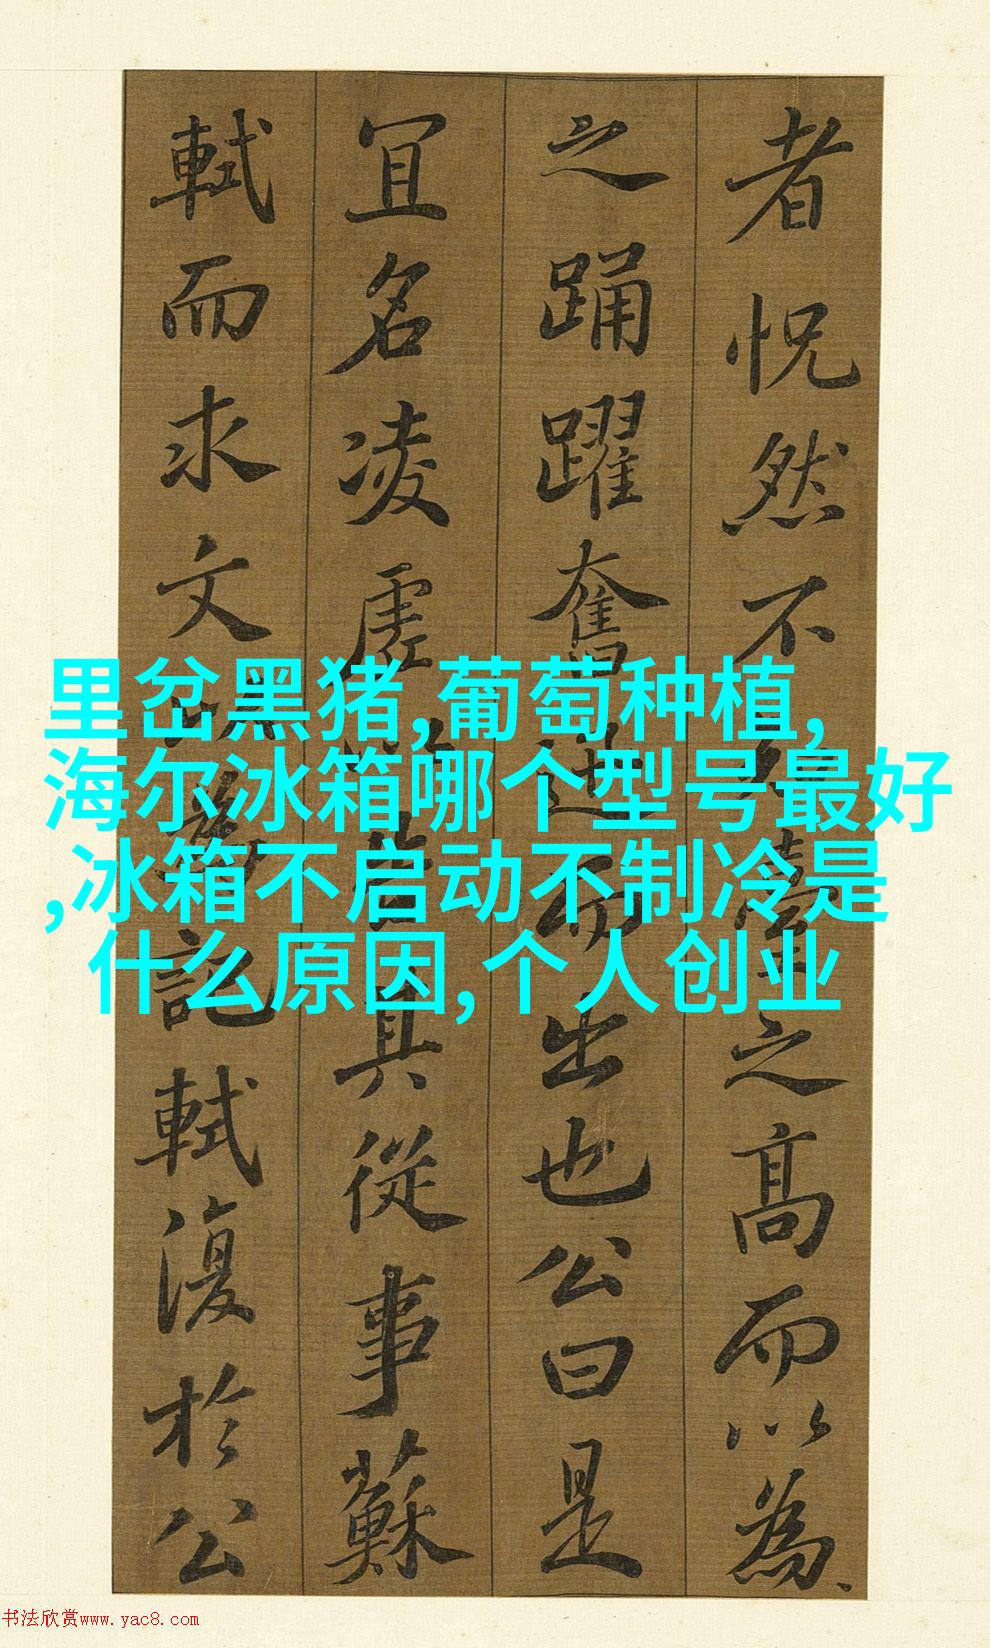 者怳然不知臺之高而以為
之踴躍奮迅而出也公曰是
宜名凌虛以告其從事蘇
軾而求文以為記軾復於公
里岔黑猪,葡萄种植,
海尔冰箱哪个型号最好
,冰箱不启动不制冷是
什么原因,个人创业
书法欣赏www.yac8.com